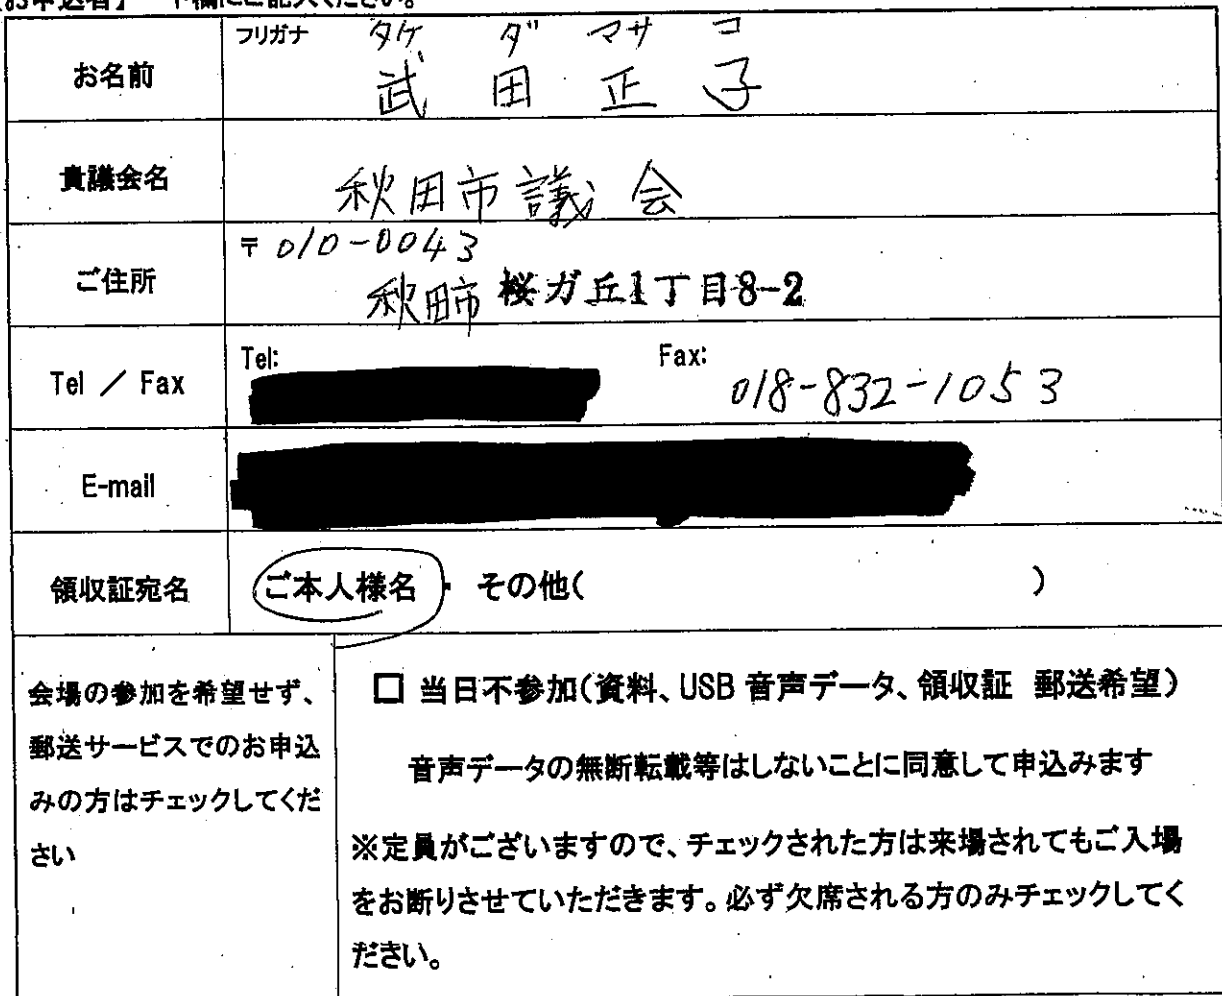 【お申込者】 下欄にご記入ください。
フリガナ タケ ダ マサ コ
お名前 武 田 正 子
貴議会名 秋田市議会
ご住所 〒010-0043
秋田市 桜ガ丘1丁目8-2
Tel / Fax Tel: Fax: 018-832-1053
E-mail
領収証宛名 ご本人様名 ・ その他( )
会場の参加を希望せず、
郵送サービスでのお申込
みの方はチェックしてくだ
さい
□ 当日不参加(資料、USB 音声データ、領収証 郵送希望)
音声データの無断転載等はしないことに同意して申込みます
※定員がございますので、チェックされた方は来場されてもご入場
をお断りさせていただきます。必ず欠席される方のみチェックしてく
ださい。